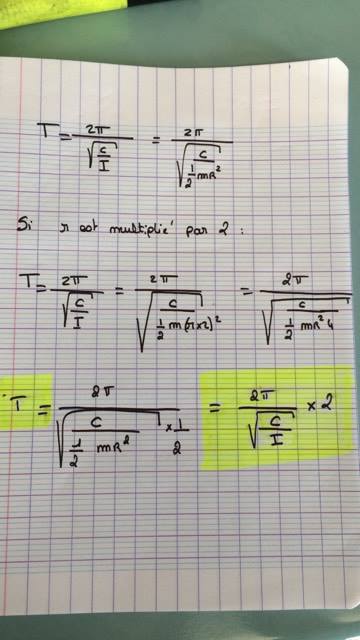 T = 2π / √(C / I) = 2π / √(C / (1/2 mR²))
Si r est multiplié par 2 :
T = 2π / √(C / I) = 2π / √(C / (1/2 m(r×2)²)) = 2π / √(C / (1/2 mR² 4))
T = 2π / (√(C / (1/2 mR²)) × 1/2) = 2π / √(C / I) × 2